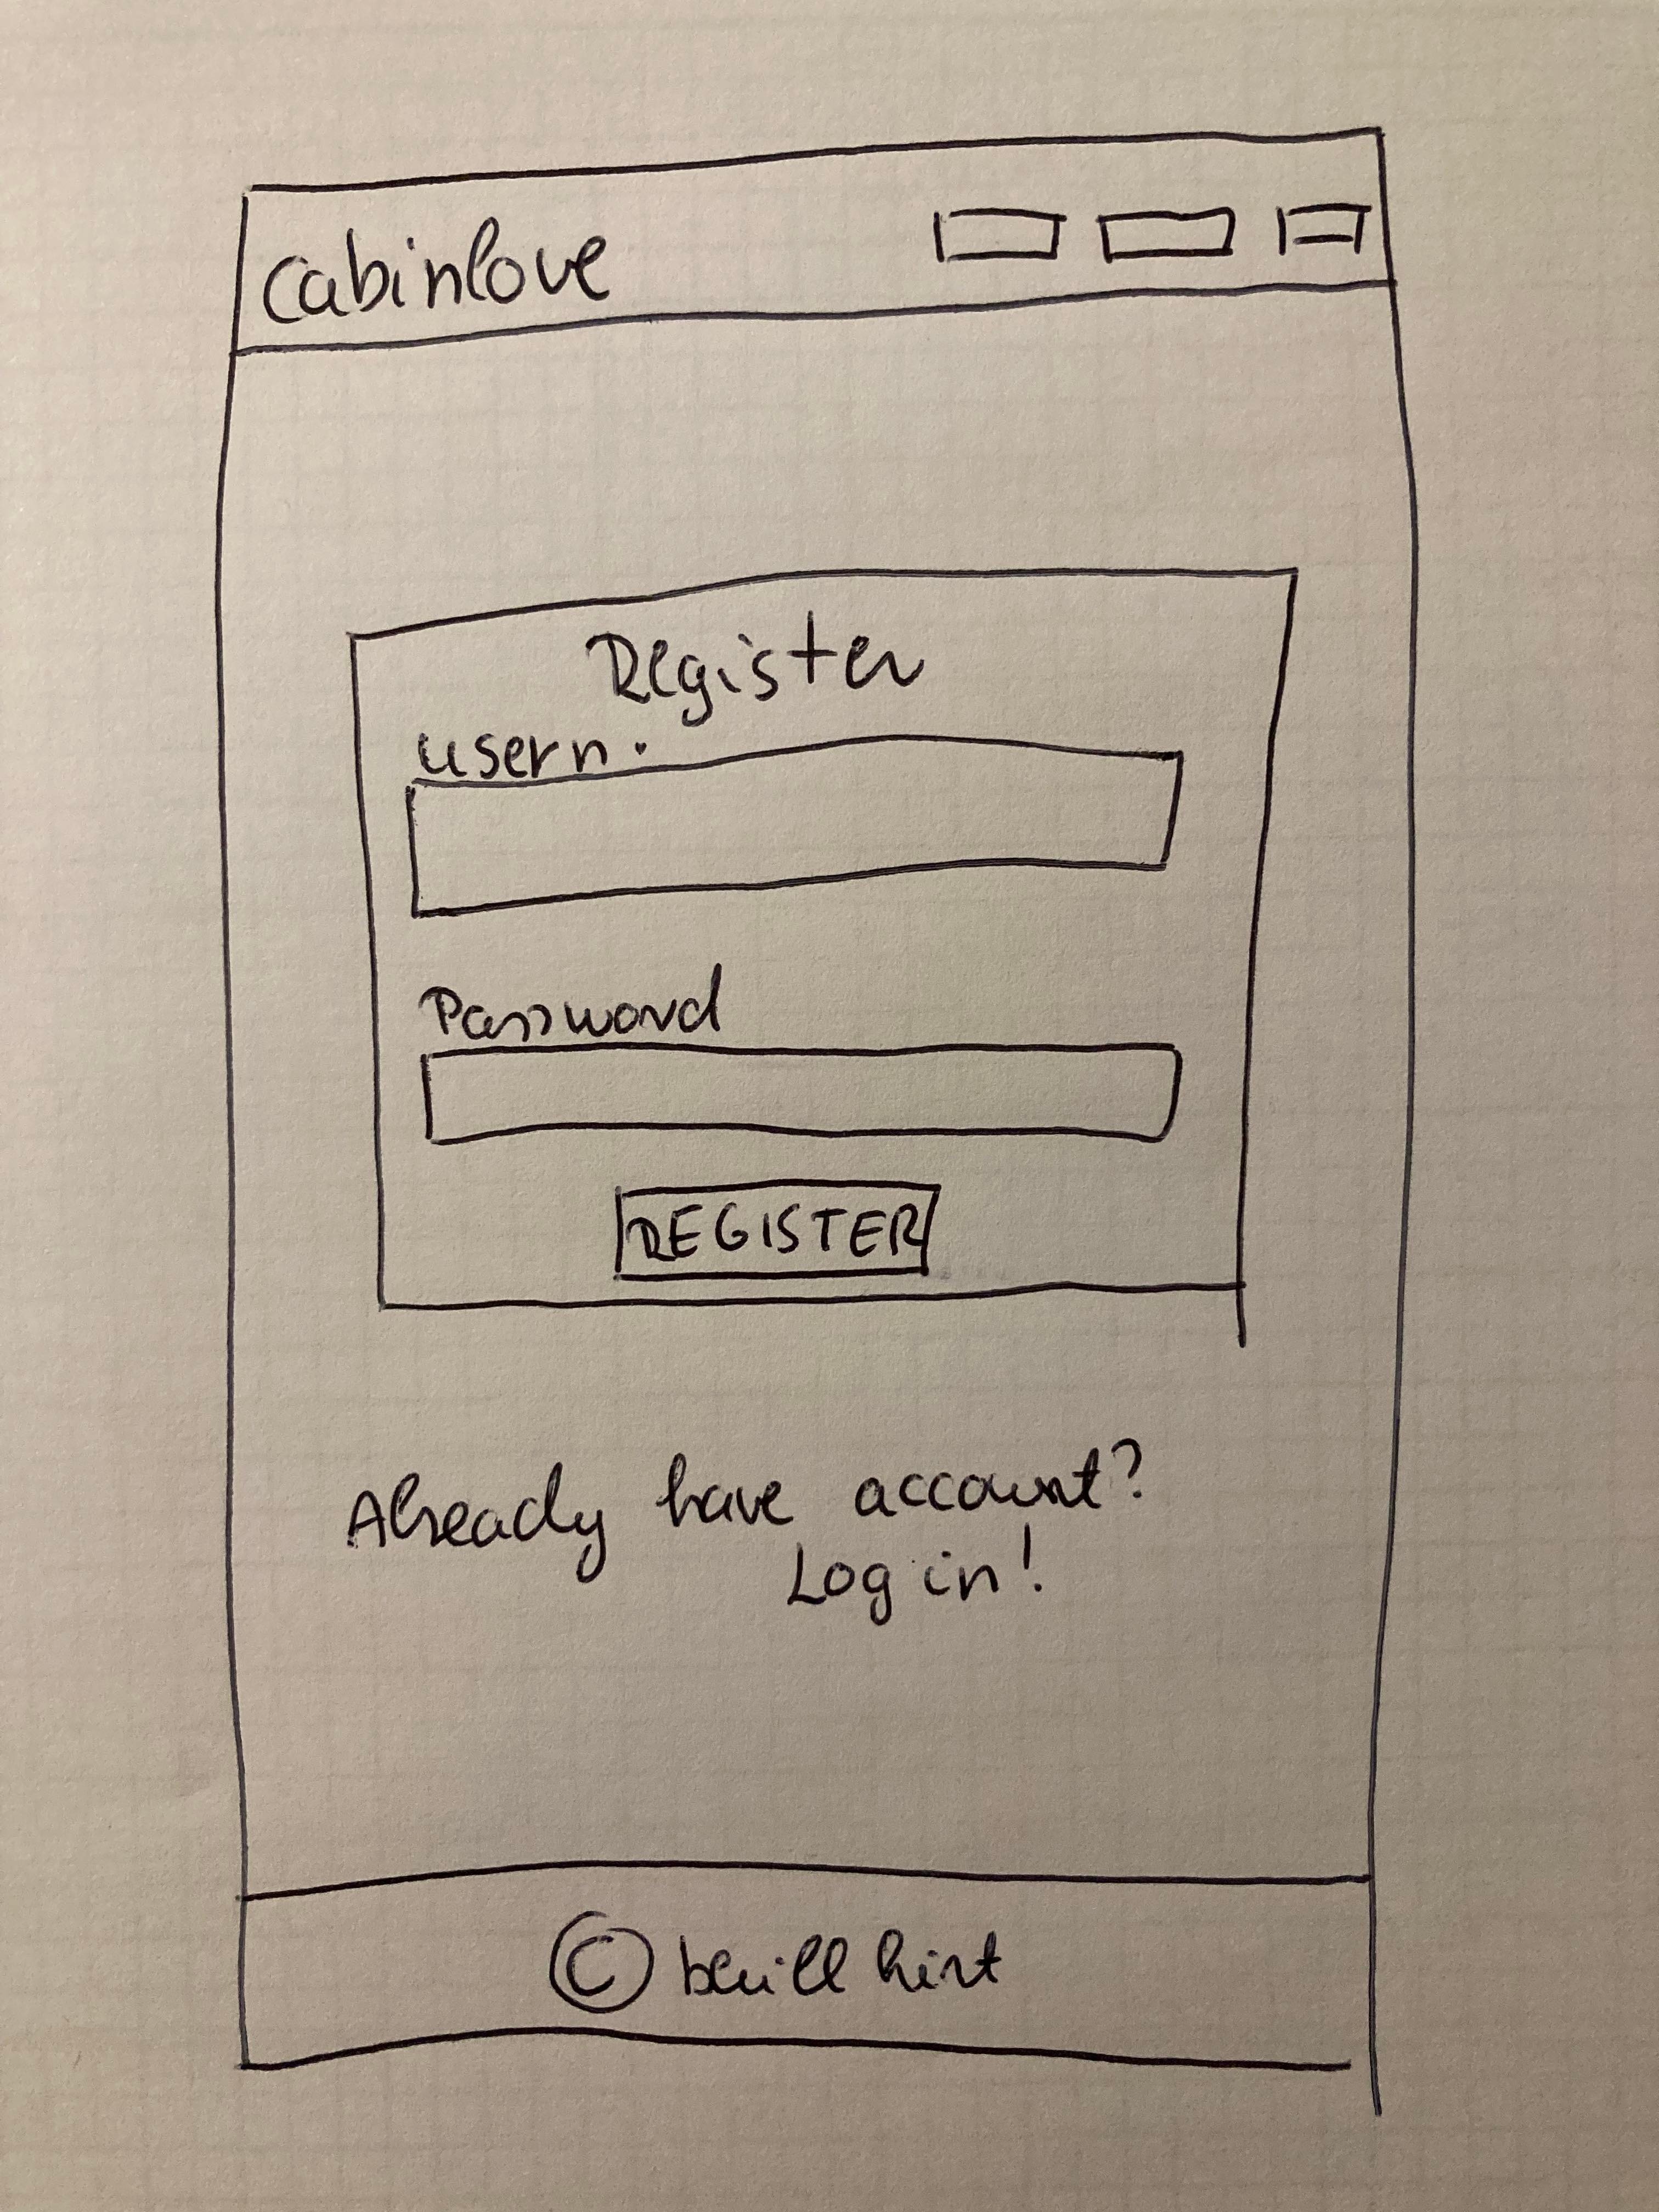 cabinlove
Register
usern.
Password
REGISTER
Already have account?
Log in!
©